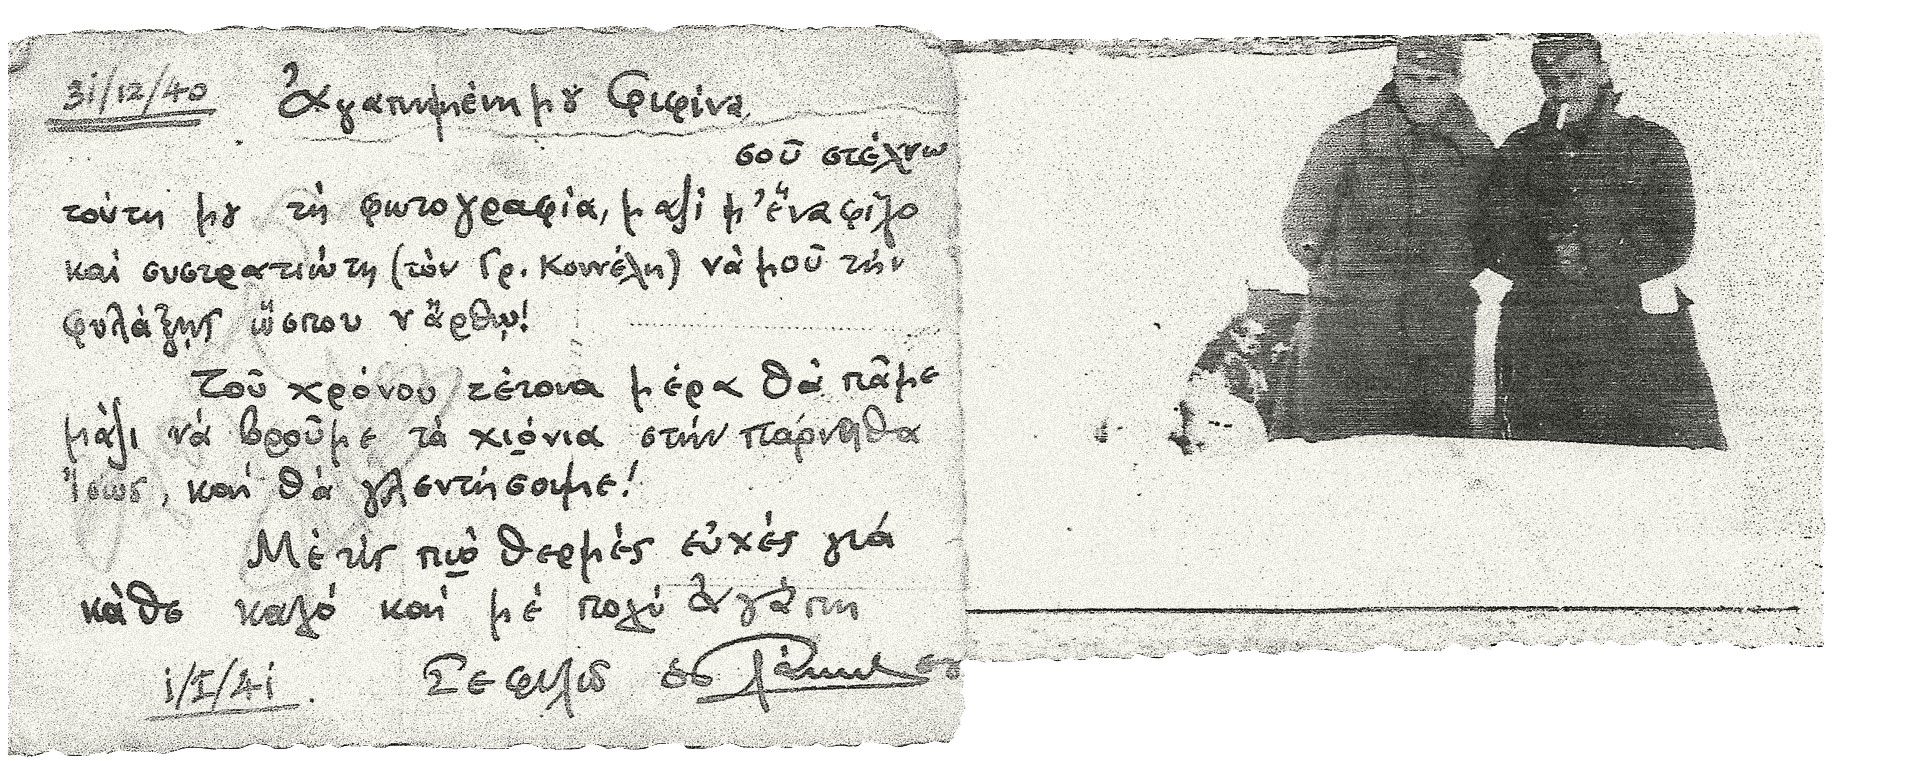 31/12/40 Ἀγαπημένη μου Φιφίνα,
σοῦ στέλνω
τούτη μου τὴ φωτογραφία, μαζὶ μ' ἕνα φίλο
καὶ συστρατιώτη (τὸν Γρ. Κοννέλη) νὰ μοῦ τὴν
φυλάξῃς ὥσπου νἄρθω!
Τοῦ χρόνου τέτοια μέρα θὰ πᾶμε
μαζὶ νὰ βροῦμε τὰ χιόνια στὴν Πάρνηθα
ἴσως, καὶ θὰ γλεντήσουμε!
Μὲ τὶς πιὸ θερμὲς εὐχὲς γιὰ
κάθε καλὸ καὶ μὲ πολὺ ἀγάπη
1/1/41. Σὲ φιλῶ ὁ Λάκης σου